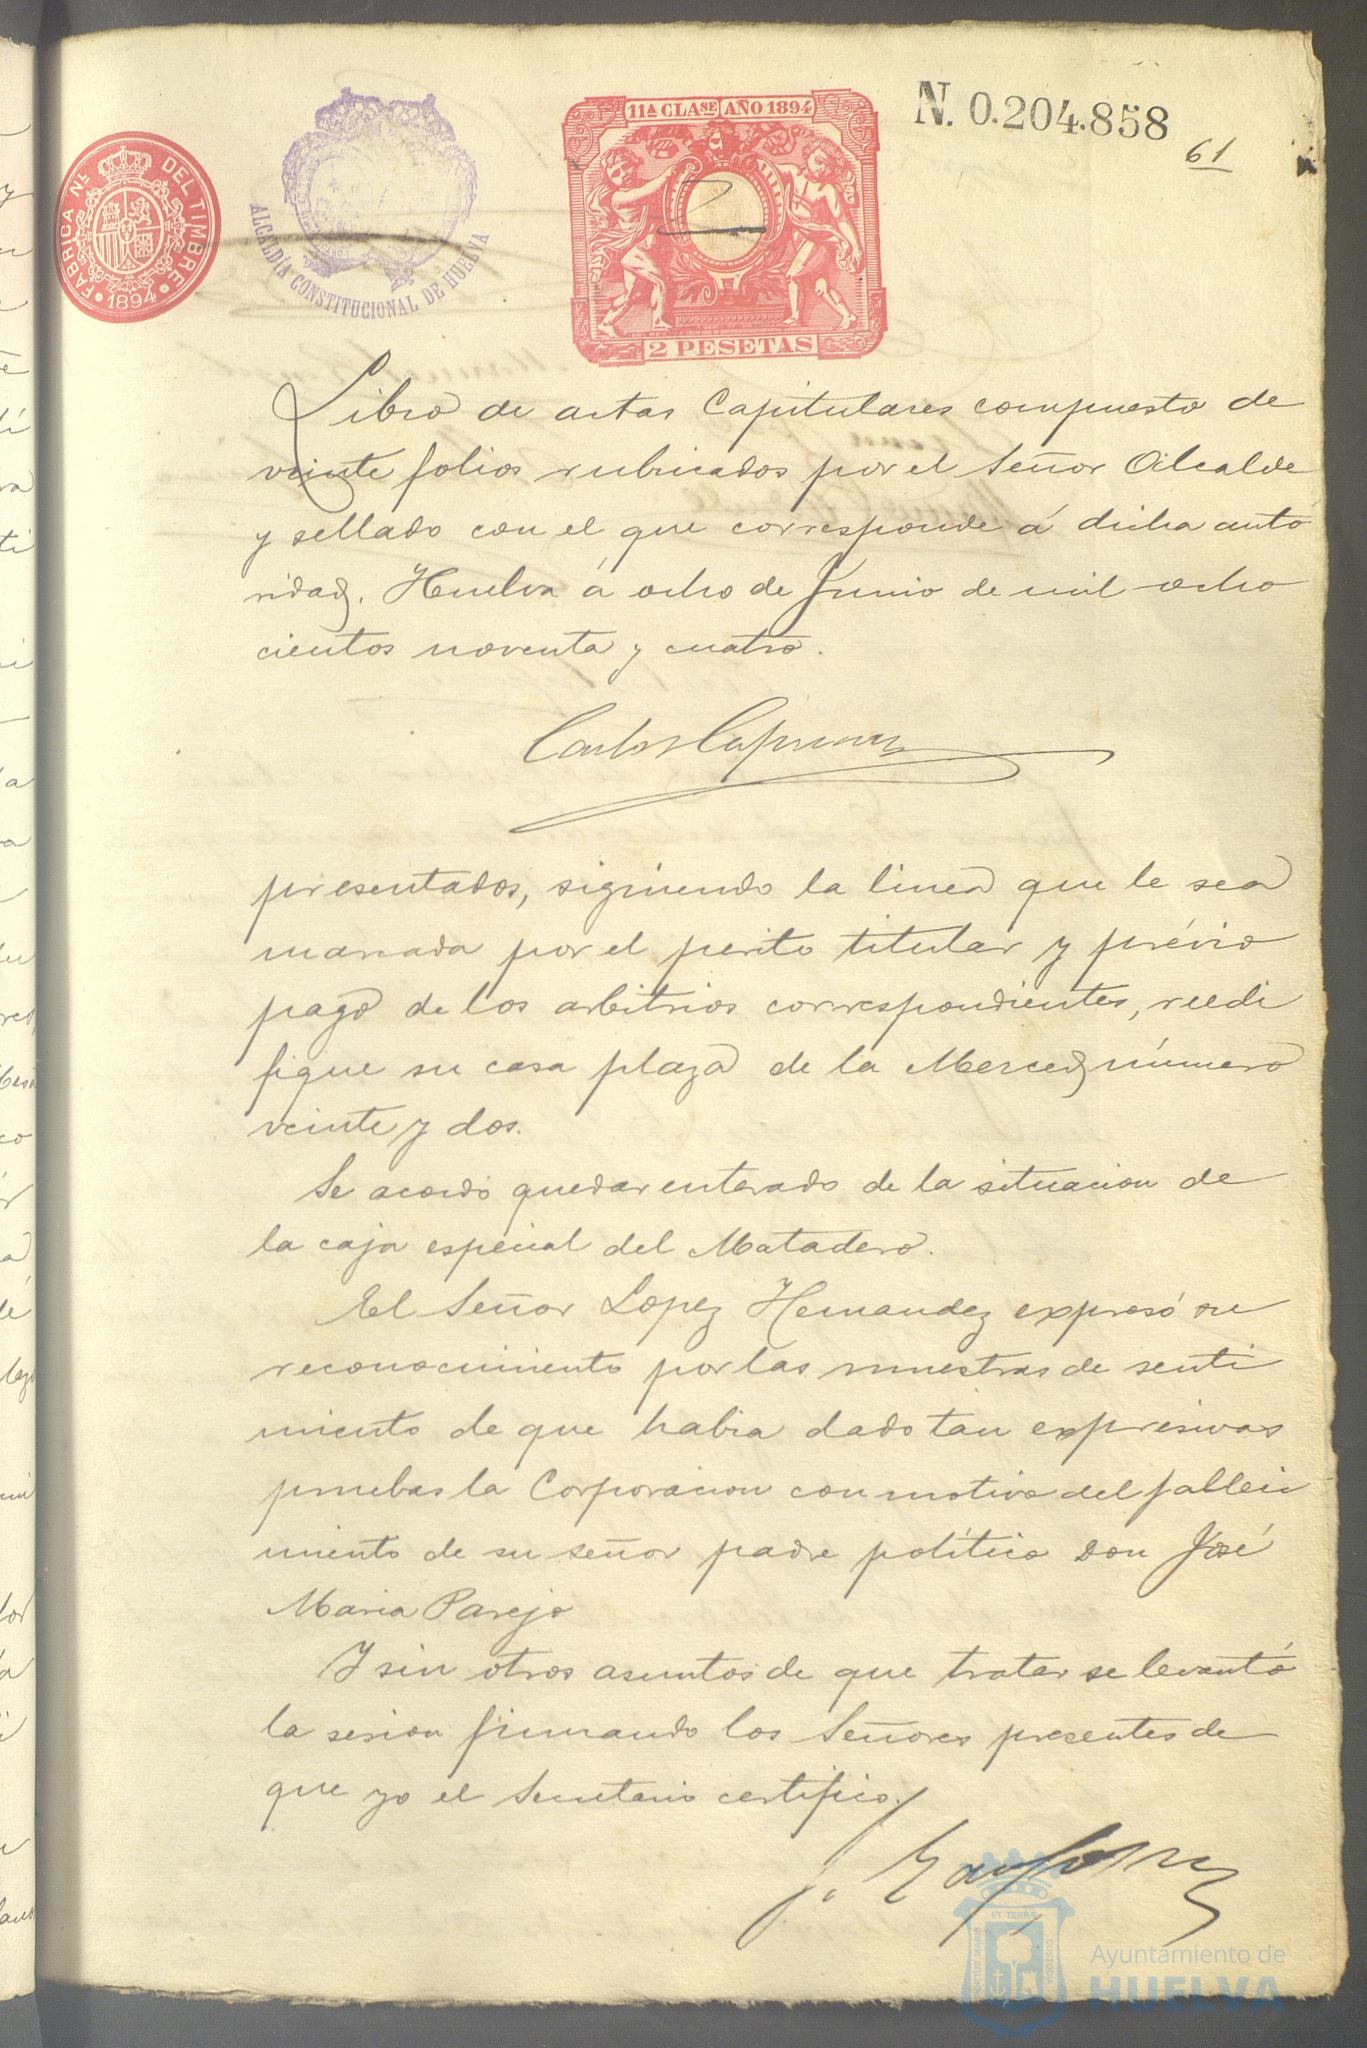 N. 0.204.858
61
FABRICA NL. DEL TIMBRE
1894
ALCALDÍA CONSTITUCIONAL DE HUELVA
11A CLASE AÑO 1894
2 PESETAS
Libro de actas Capitulares compuesto de
veinte folios rubricados por el Señor Alcalde
y sellado con el que corresponde á dicha auto
ridad. Huelva á ocho de Junio de mil ocho
cientos noventa y cuatro.
Carlos
presentados, siguiendo la linea que le sea
marcada por el perito titular y prévio
pago de los arbitrios correspondientes, reedi
fique su casa plaza de la Merced número
veinte y dos.
Se acordó quedar enterado de la situacion de
la caja especial del Matadero.
El Señor Lopez Hernandez expresó su
reconocimiento por las muestras de senti
miento de que habia dado tan expresivas
pruebas la Corporacion con motivo del falleci
miento de su señor padre político Don José
Maria Parejo
Y sin otros asuntos de que tratar se levantó
la sesion firmando los Señores presentes de
que yo el Secretario certifico.
PORTUS MARIS ET TERRÆ CUSTODIA
Ayuntamiento de
HUELVA